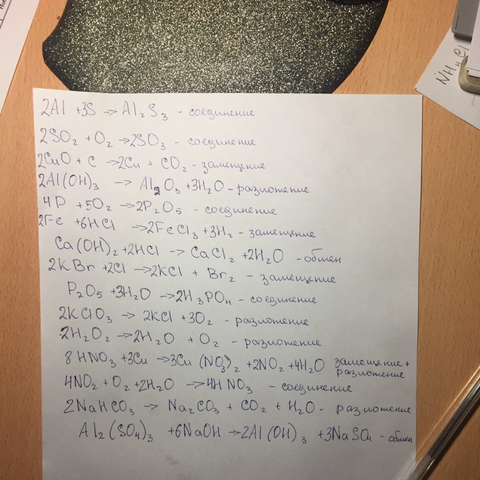 2Al + 3S → Al₂S₃ - соединение
2SO₂ + O₂ → 2SO₃ - соединение
2CuO + C → 2Cu + CO₂ - замещение
2Al(OH)₃ → Al₂O₃ + 3H₂O - разложение
4P + 5O₂ → 2P₂O₅ - соединение
2Fe + 6HCl → 2FeCl₃ + 3H₂ - замещение
Ca(OH)₂ + 2HCl → CaCl₂ + 2H₂O - обмен
2KBr + 2Cl → 2KCl + Br₂ - замещение
P₂O₅ + 3H₂O → 2H₃PO₄ - соединение
2KClO₃ → 2KCl + 3O₂ - разложение
2H₂O₂ → 2H₂O + O₂ - разложение
8HNO₃ + 3Cu → 3Cu(NO₃)₂ + 2NO₂ + 4H₂O замещение + разложение
4NO₂ + O₂ + 2H₂O → 4HNO₃ - соединение
2NaHCO₃ → Na₂CO₃ + CO₂ + H₂O - разложение
Al₂(SO₄)₃ + 6NaOH → 2Al(OH)₃ + 3NaSO₄ - обмен